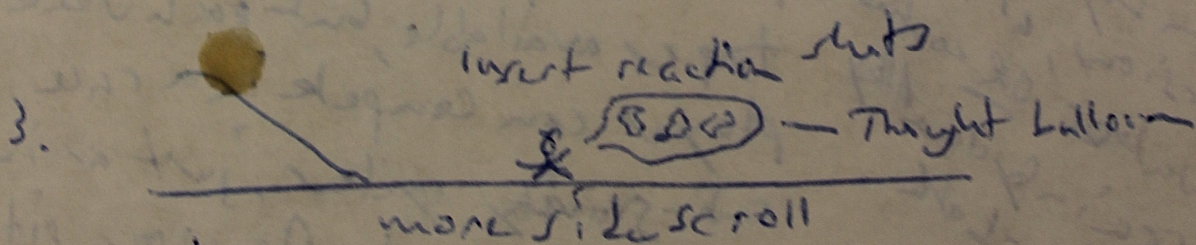 insert reaction shots
3.
— Thought balloon
more side scroll